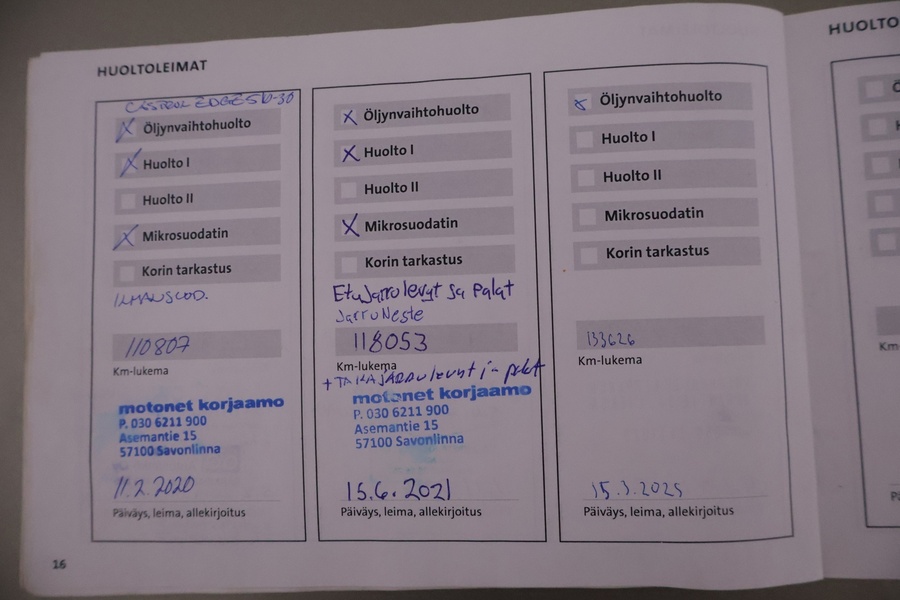 HUOLTOLEIMAT
CASTROL EDGE 5W-30
X Öljynvaihtohuolto
X Huolto I
Huolto II
X Mikrosuodatin
Korin tarkastus
ILMANSUOD.
110807
Km-lukema
motonet korjaamo
P. 030 6211 900
Asemantie 15
57100 Savonlinna
11.2.2020
Päiväys, leima, allekirjoitus
X Öljynvaihtohuolto
X Huolto I
Huolto II
X Mikrosuodatin
Korin tarkastus
Etujarrulevyt ja Palat
JarruNeste
118053
Km-lukema
+ TAKAJARRulevyt j- palat
motonet korjaamo
P. 030 6211 900
Asemantie 15
57100 Savonlinna
15.6.2021
Päiväys, leima, allekirjoitus
x Öljynvaihtohuolto
Huolto I
Huolto II
Mikrosuodatin
Korin tarkastus
133626
Km-lukema
15.3.2025
Päiväys, leima, allekirjoitus
HUOLTO
Km-
16